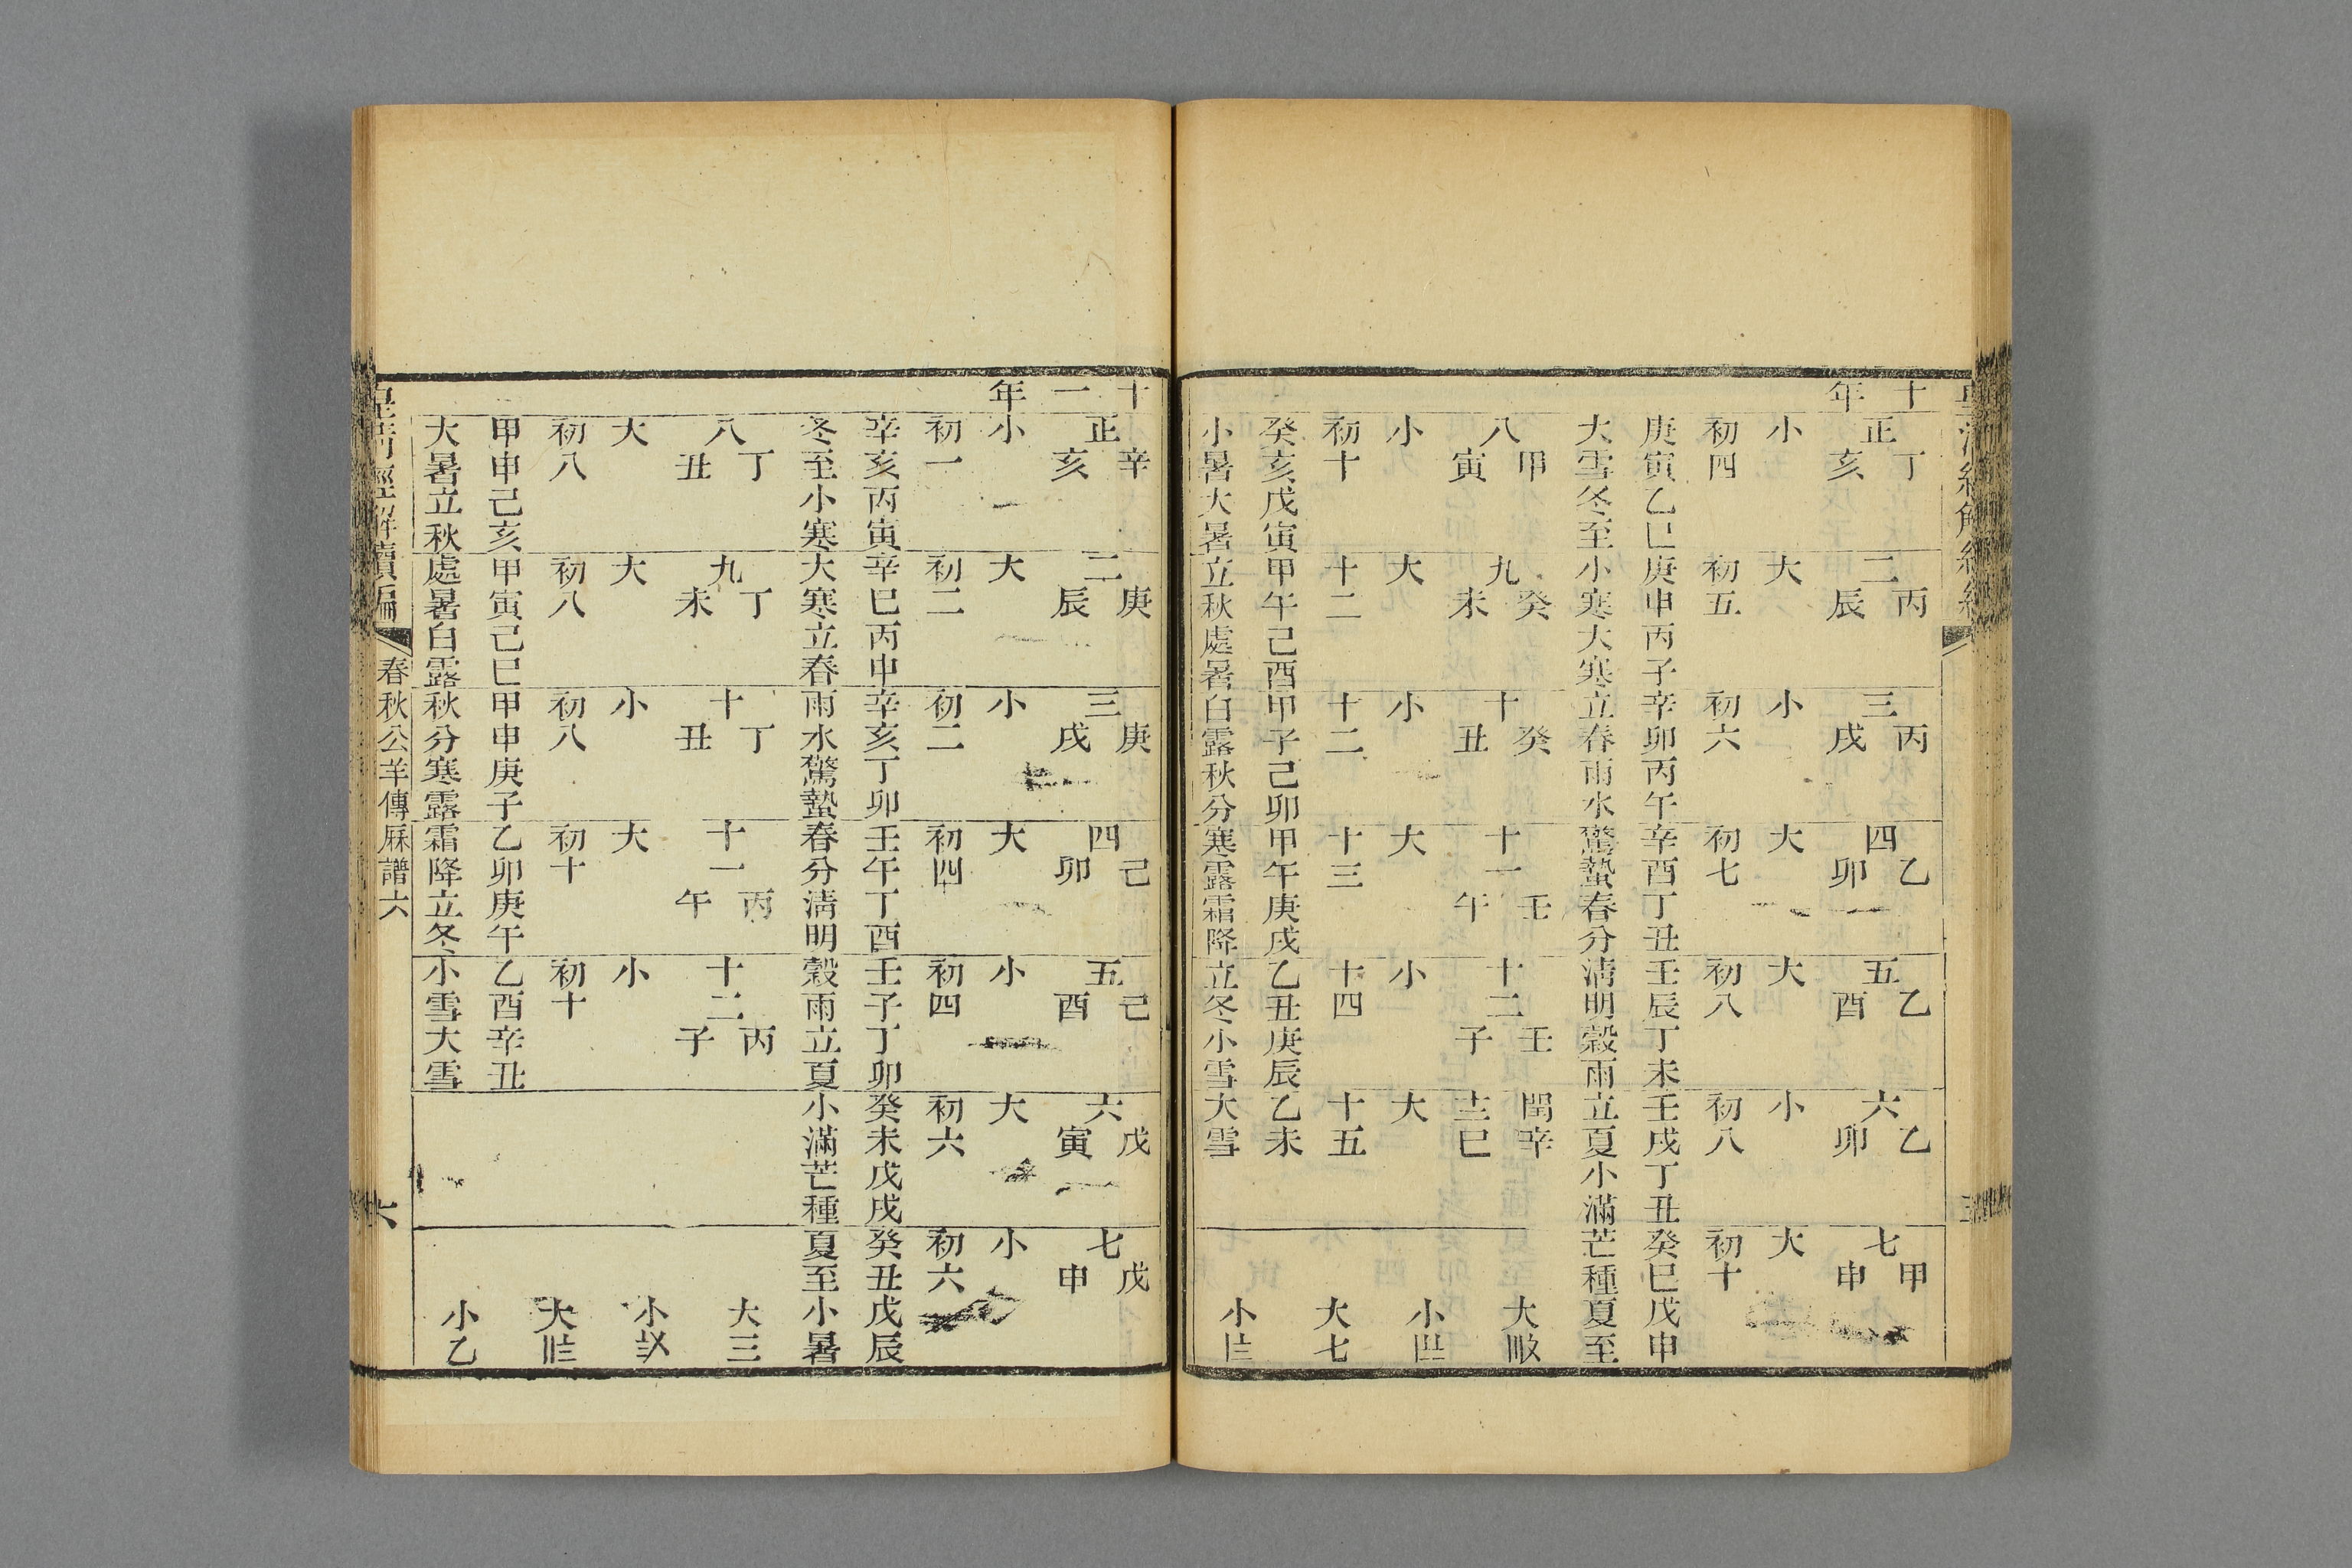 十年
正丁亥 二丙辰 三丙戌 四乙卯 五乙酉 六乙卯 七甲申
小 大 小 大 大 小 大
初四 初五 初六 初七 初八 初八 初十
庚寅乙巳 庚申丙子 辛卯丙午 辛酉丁丑 壬辰丁未 壬戌丁丑 癸巳戊申
大雪冬至 小寒大寒 立春雨水 驚蟄春分 清明穀雨 立夏小滿 芒種夏至
八甲寅 九癸未 十癸丑 十一壬午 十二壬子 閏十二辛巳
大
小 大 小 大 小 大
小
初十 十二 十二 十三 十四 十五
大七
癸亥戊寅 甲午己酉 甲子己卯 甲午庚戌 乙丑庚辰 乙未
小
小暑大暑 立秋處暑 白露秋分 寒露霜降 立冬小雪 大雪
十一年
正辛亥 二庚辰 三庚戌 四己卯 五己酉 六戊寅 七戊申
小 大 小 大 小 大 小
初一 初二 初二 初四 初四 初六 初六
辛亥丙寅 辛巳丙申 辛亥丁卯 壬午丁酉 壬子丁卯 癸未戊戌 癸丑戊辰
冬至小寒 大寒立春 雨水驚蟄 春分清明 穀雨立夏 小滿芒種 夏至小暑
八丁丑 九丁未 十丁丑 十一丙午 十二丙子
大三
大 大 小 大 小
小
初八 初八 初八 初十 初十
大
甲申己亥 甲寅己巳 甲申庚子 乙卯庚午 乙酉辛丑
小乙
大暑立秋 處暑白露 秋分寒露 霜降立冬 小雪大雪
皇清經解續編 春秋公羊傳厤譜六 六